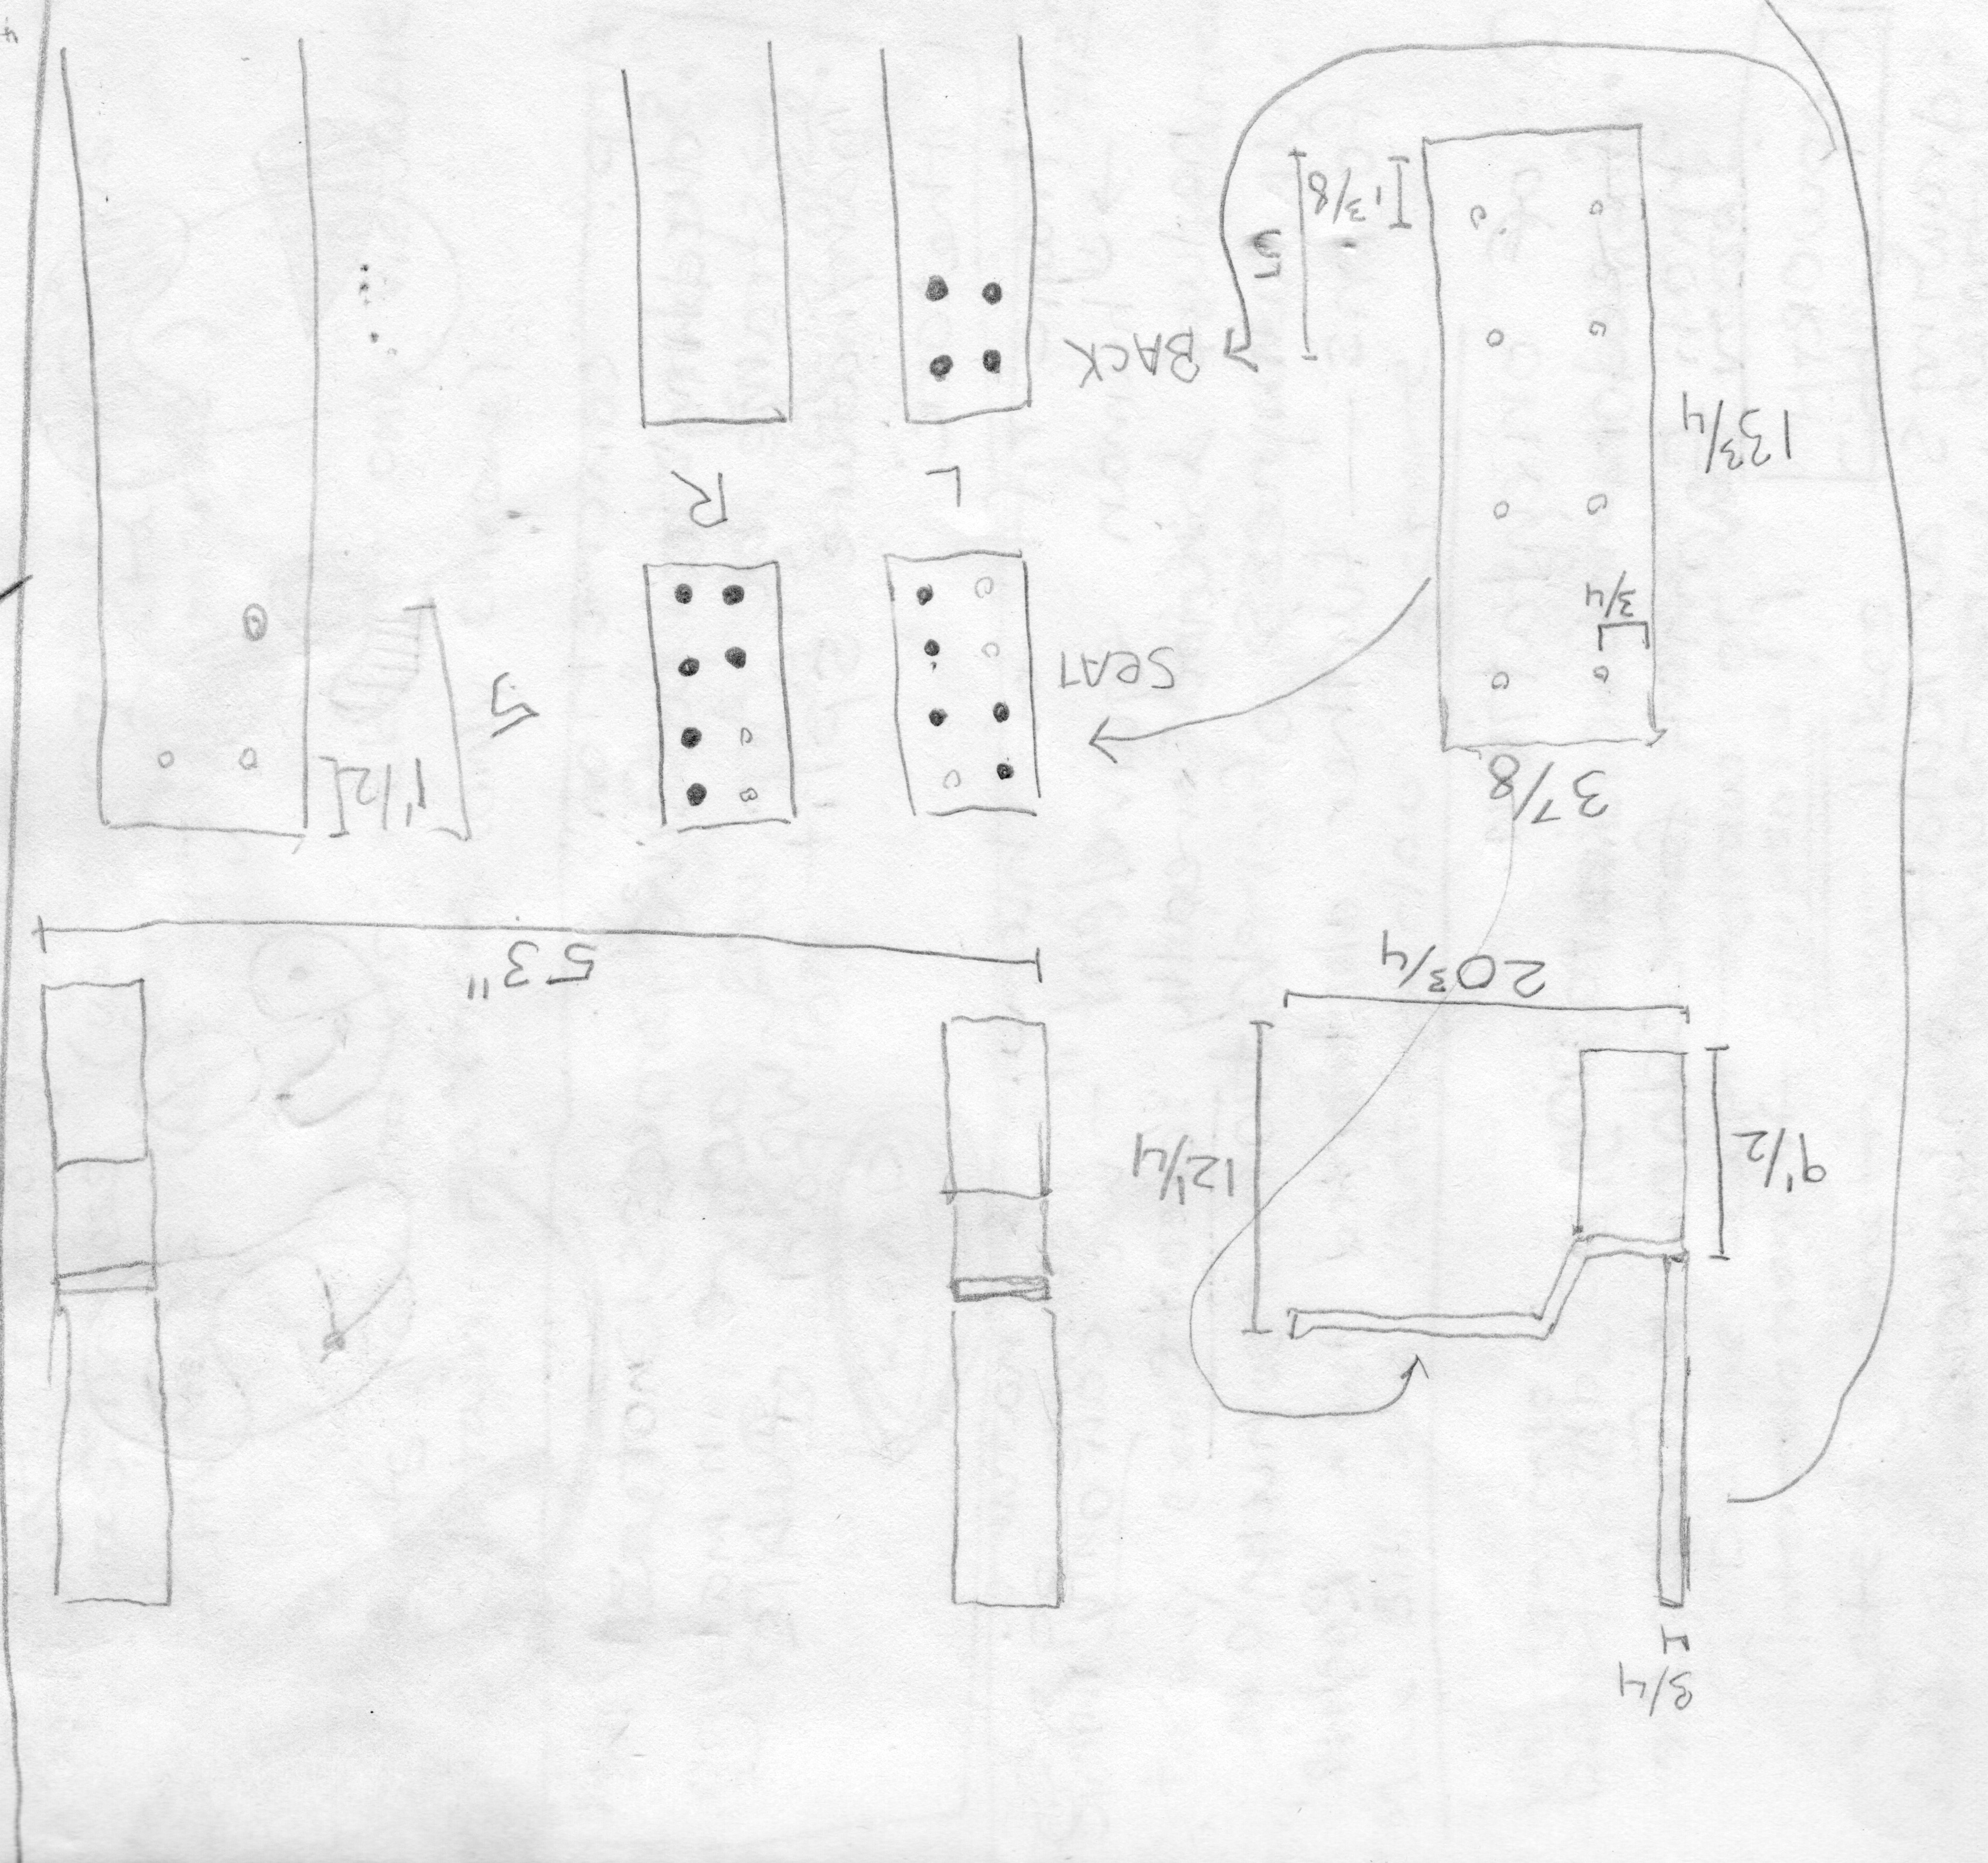 3/4
9 1/2
12 1/4
20 3/4
53"
3 7/8
3/4
13 3/4
1 3/8
5
SEAT
L
R
BACK
5
1 1/2